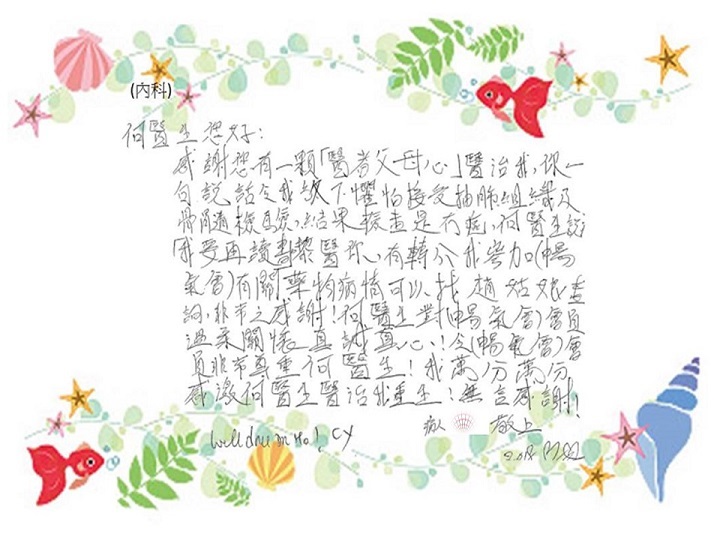 (內科)
何醫生您好：
感謝您有一顆「醫者父母心」醫治我，你一
句說話令我放下懼怕接受抽肺組織及
骨髓檢驗，結果檢查是冇癌，何醫生說
「我要再讀書黎醫你」，有轉介我參加(暢
氣會)有關藥物病情可以找趙姑娘查
詢，非常之感謝！何醫生對(暢氣會)會員
溫柔關懷真誠真心！令(暢氣會)會
員非常尊重何醫生！我萬分萬分
感激何醫生醫治我重生！無言感謝！
病人 敬上
Well done Dr Ho! CY